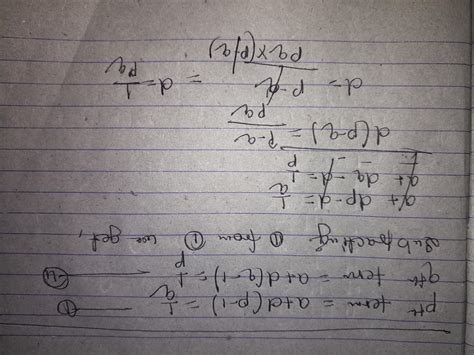 pth term = a+d(p-1) = 1/q —— ①
qth term = a+d(q-1) = 1/p —— ⑪
Subtracting ① from ① we get,
a + dp - d = 1/q
a + dq - d = 1/p
- -
d(p-q) = p-q/pq
d = p-q/pq x(p-q) = d = 1/pq